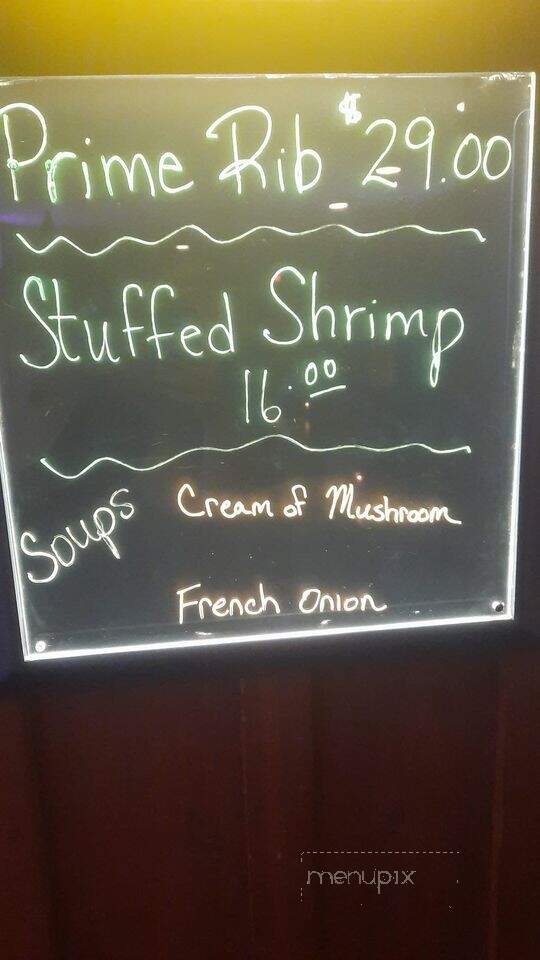 Prime Rib $29.00
Stuffed Shrimp
16.00
Soups Cream of Mushroom
French Onion
menupix